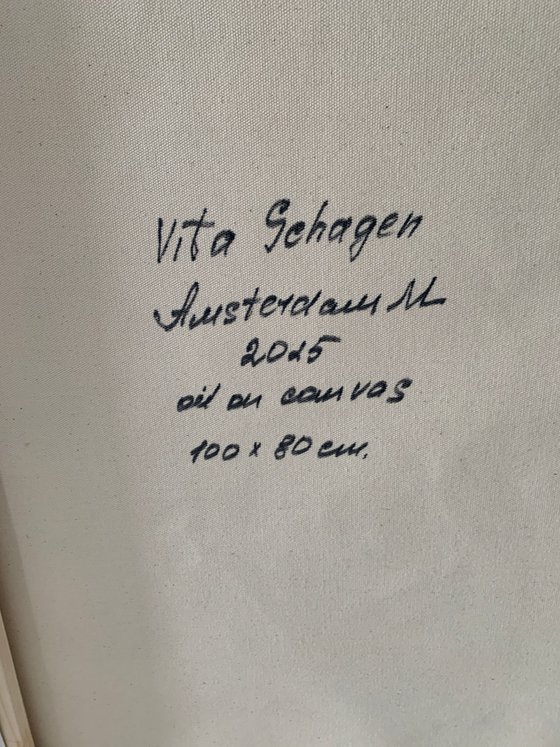 Vita Schagen
Amsterdam M
2025
oil on canvas
100 x 80 cm.